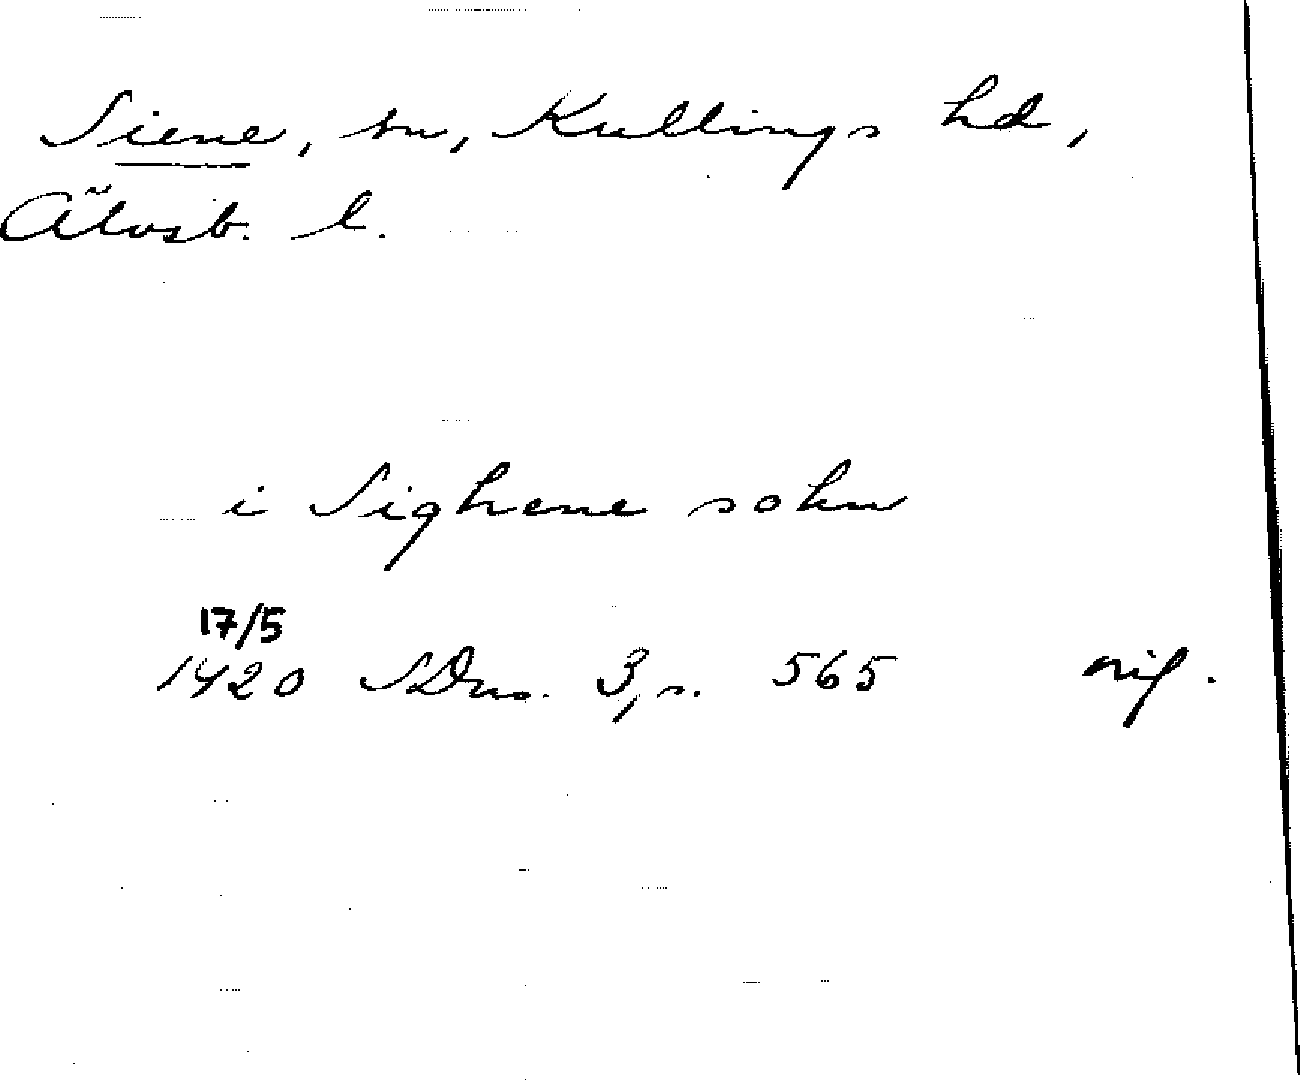 Siene, sn, Kullings hd,
Älvsb. l.
i Sighene sokn
17/5
1420 SDns. 3, s. 565 orig.